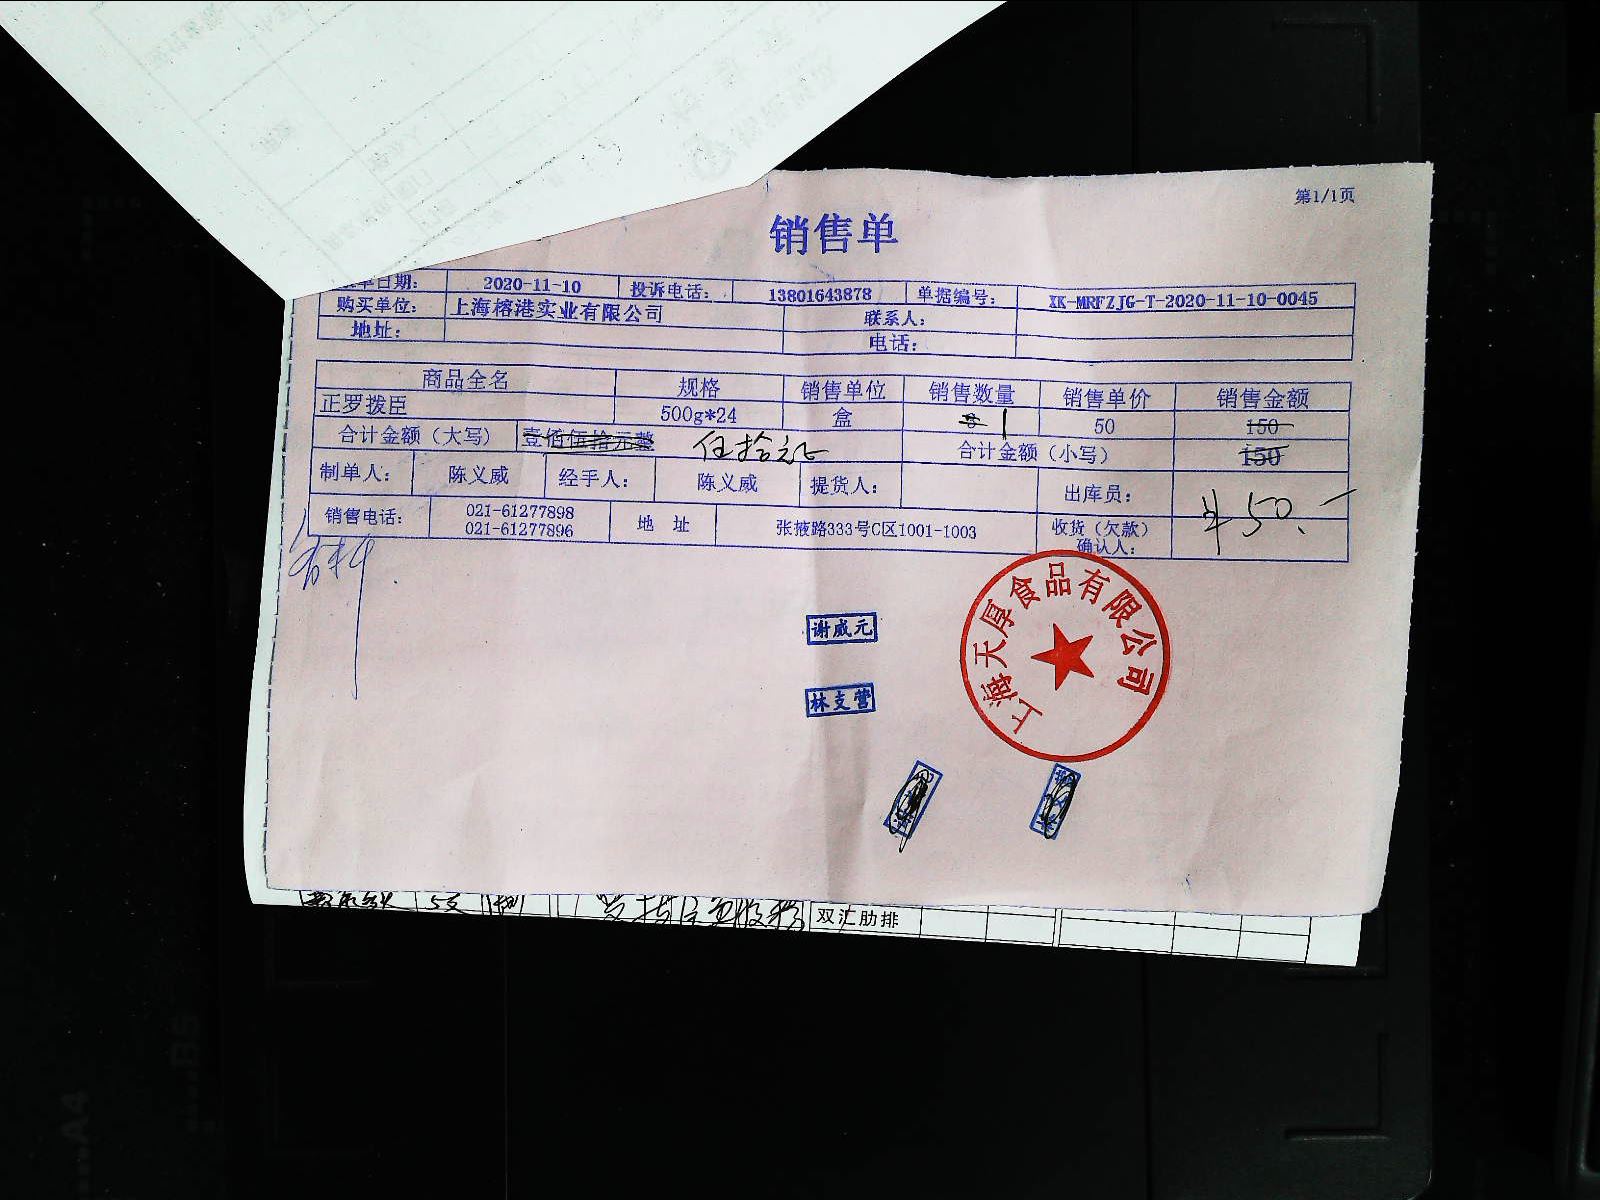 第1/1页
销售单
日期： 2020-11-10 投诉电话： 13801643878 单据编号： XK-MRFZJG-T-2020-11-10-0045
购买单位： 上海榕港实业有限公司 联系人：
地址： 电话：
商品全名 规格 销售单位 销售数量 销售单价 销售金额
正罗拨臣 500g*24 盒 3 1 50 150
合计金额（大写） 壹佰伍拾元整 伍拾元正 合计金额（小写） 150
制单人： 陈义威 经手人： 陈义威 提货人： 出库员：
¥50.-
销售电话： 021-61277898 地 址 张掖路333号C区1001-1003 收货（欠款）
021-61277896 确认人：
上海天厚食品有限公司
谢威元
林支营
5支 双汇肋排